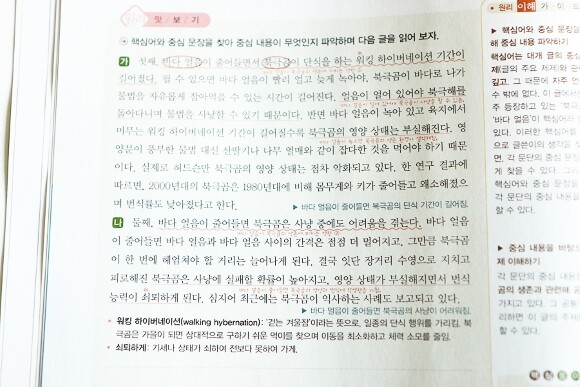 맛 보 기
핵심어와 중심 문장을 찾아 중심 내용이 무엇인지 파악하며 다음 글을 읽어 보자.
가 첫째, 바다 얼음이 줄어들면서 북극곰이 단식을 하는 워킹 하이버네이션 기간이
길어졌다. 될 수 있으면 바다 얼음이 빨리 얼고 늦게 녹아야, 북극곰이 바다로 나가
물범을 자유롭게 잡아먹을 수 있는 시간이 길어진다. 얼음이 얼어 있어야 북극해를
돌아다니며 물범을 사냥할 수 있기 때문이다. 반면 바다 얼음이 녹아 있고 육지에서
머무는 워킹 하이버네이션 기간이 길어질수록 북극곰의 영양 상태는 부실해진다. 영
양분이 풍부한 물범 대신 산딸기나 나무 열매와 같이 잡다한 것을 먹어야 하기 때문
이다. 실제로 허드슨만 북극곰의 영양 상태는 점차 악화되고 있다. 한 연구 결과에
따르면, 2000년대의 북극곰은 1980년대에 비해 몸무게와 키가 줄어들고 왜소해졌으
며 번식률도 낮아졌다고 한다.
▶ 바다 얼음이 줄어들면 북극곰의 단식 기간이 길어짐.
나 둘째, 바다 얼음이 줄어들면 북극곰은 사냥 중에도 어려움을 겪는다. 바다 얼음
이 줄어들면 바다 얼음과 바다 얼음 사이의 간격은 점점 더 멀어지고, 그만큼 북극곰
이 한 번에 헤엄쳐야 할 거리는 늘어나게 된다. 결국 잇단 장거리 수영으로 지치고
피로해진 북극곰은 사냥에 실패할 확률이 높아지고, 영양 상태가 부실해지면서 번식
능력이 쇠퇴하게 된다. 심지어 최근에는 북극곰이 익사하는 사례도 보고되고 있다.
▶ 바다 얼음이 줄어들면 북극곰의 사냥이 어려워짐.
• 워킹 하이버네이션(walking hybernation): '걷는 겨울잠'이라는 뜻으로, 일종의 단식 행위를 가리킴. 북
극곰은 가을이 되면 상대적으로 구하기 쉬운 먹이를 찾으며 이동을 최소화하고 체력 소모를 줄임.
• 쇠퇴하게: 기세나 상태가 쇠하여 전보다 못하여 가게.
원리 이해 가 이 드
▶ 핵심어와 중심 문장
해 중심 내용 파악하기
핵심어는 대개 글의 중심
제(글의 주요 제재)와 관
깊고, 그 때문에 자주 언
수 밖에 없다. 이 글에서
주 등장하고 있는 '북극
'바다 얼음'이 핵심어라
있다. 이러한 핵심어를
으로 글쓴이의 생각을
면, 각 문단의 중심 문장
게 찾을 수 있다. 그
핵심어와 중심 문장을
각 문단의 중심 내용을
할 수 있다.
▶ 중심 내용을 바탕으
제 이해하기
각 문단의 중심 내용이
곰의 생존과 관련해
가지고 있다. 그
하면
할 수 있다.